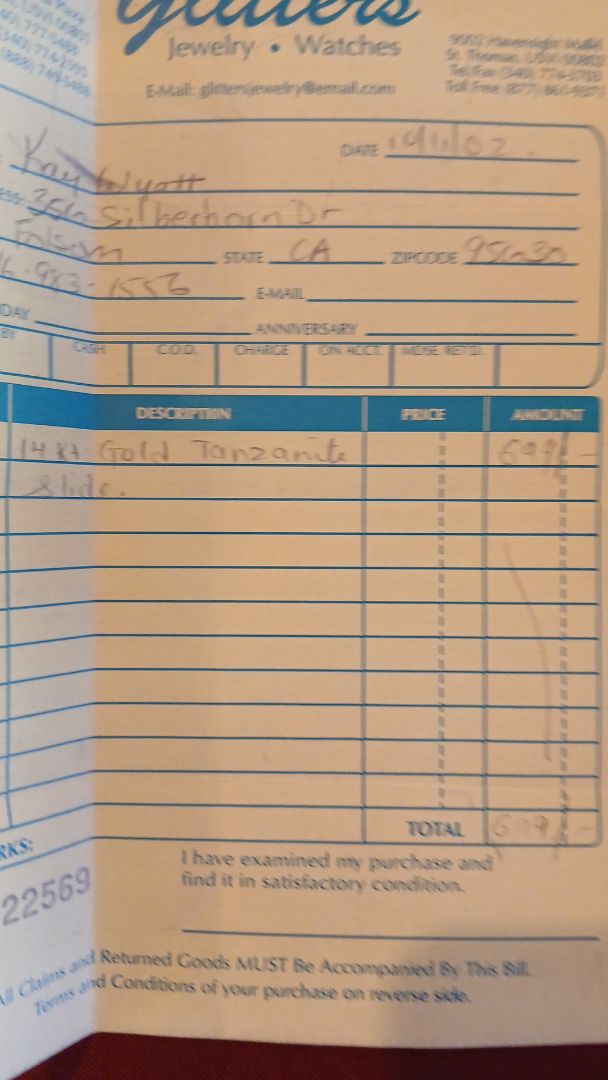 glitters
Jewelry • Watches
E-Mail: glittersjewelry@email.com
9002 Havensight Mall
St. Thomas, USVI 00802
Toll Free (877)
DATE
Kay Wyatt
Silberhorn Dr
Folsom STATE CA ZIPCODE 95630
983-1556 E-MAIL
DAY ANNIVERSARY
BY CASH C.O.D. CHARGE ON ACCT. MDSE. RET'D.
DESCRIPTION PRICE AMOUNT
14 Kt Gold Tanzanite 699/-
Slide.
TOTAL 699/-
RKS:
I have examined my purchase and
find it in satisfactory condition.
22569
All Claims and Returned Goods MUST Be Accompanied By This Bill.
Terms and Conditions of your purchase on reverse side.